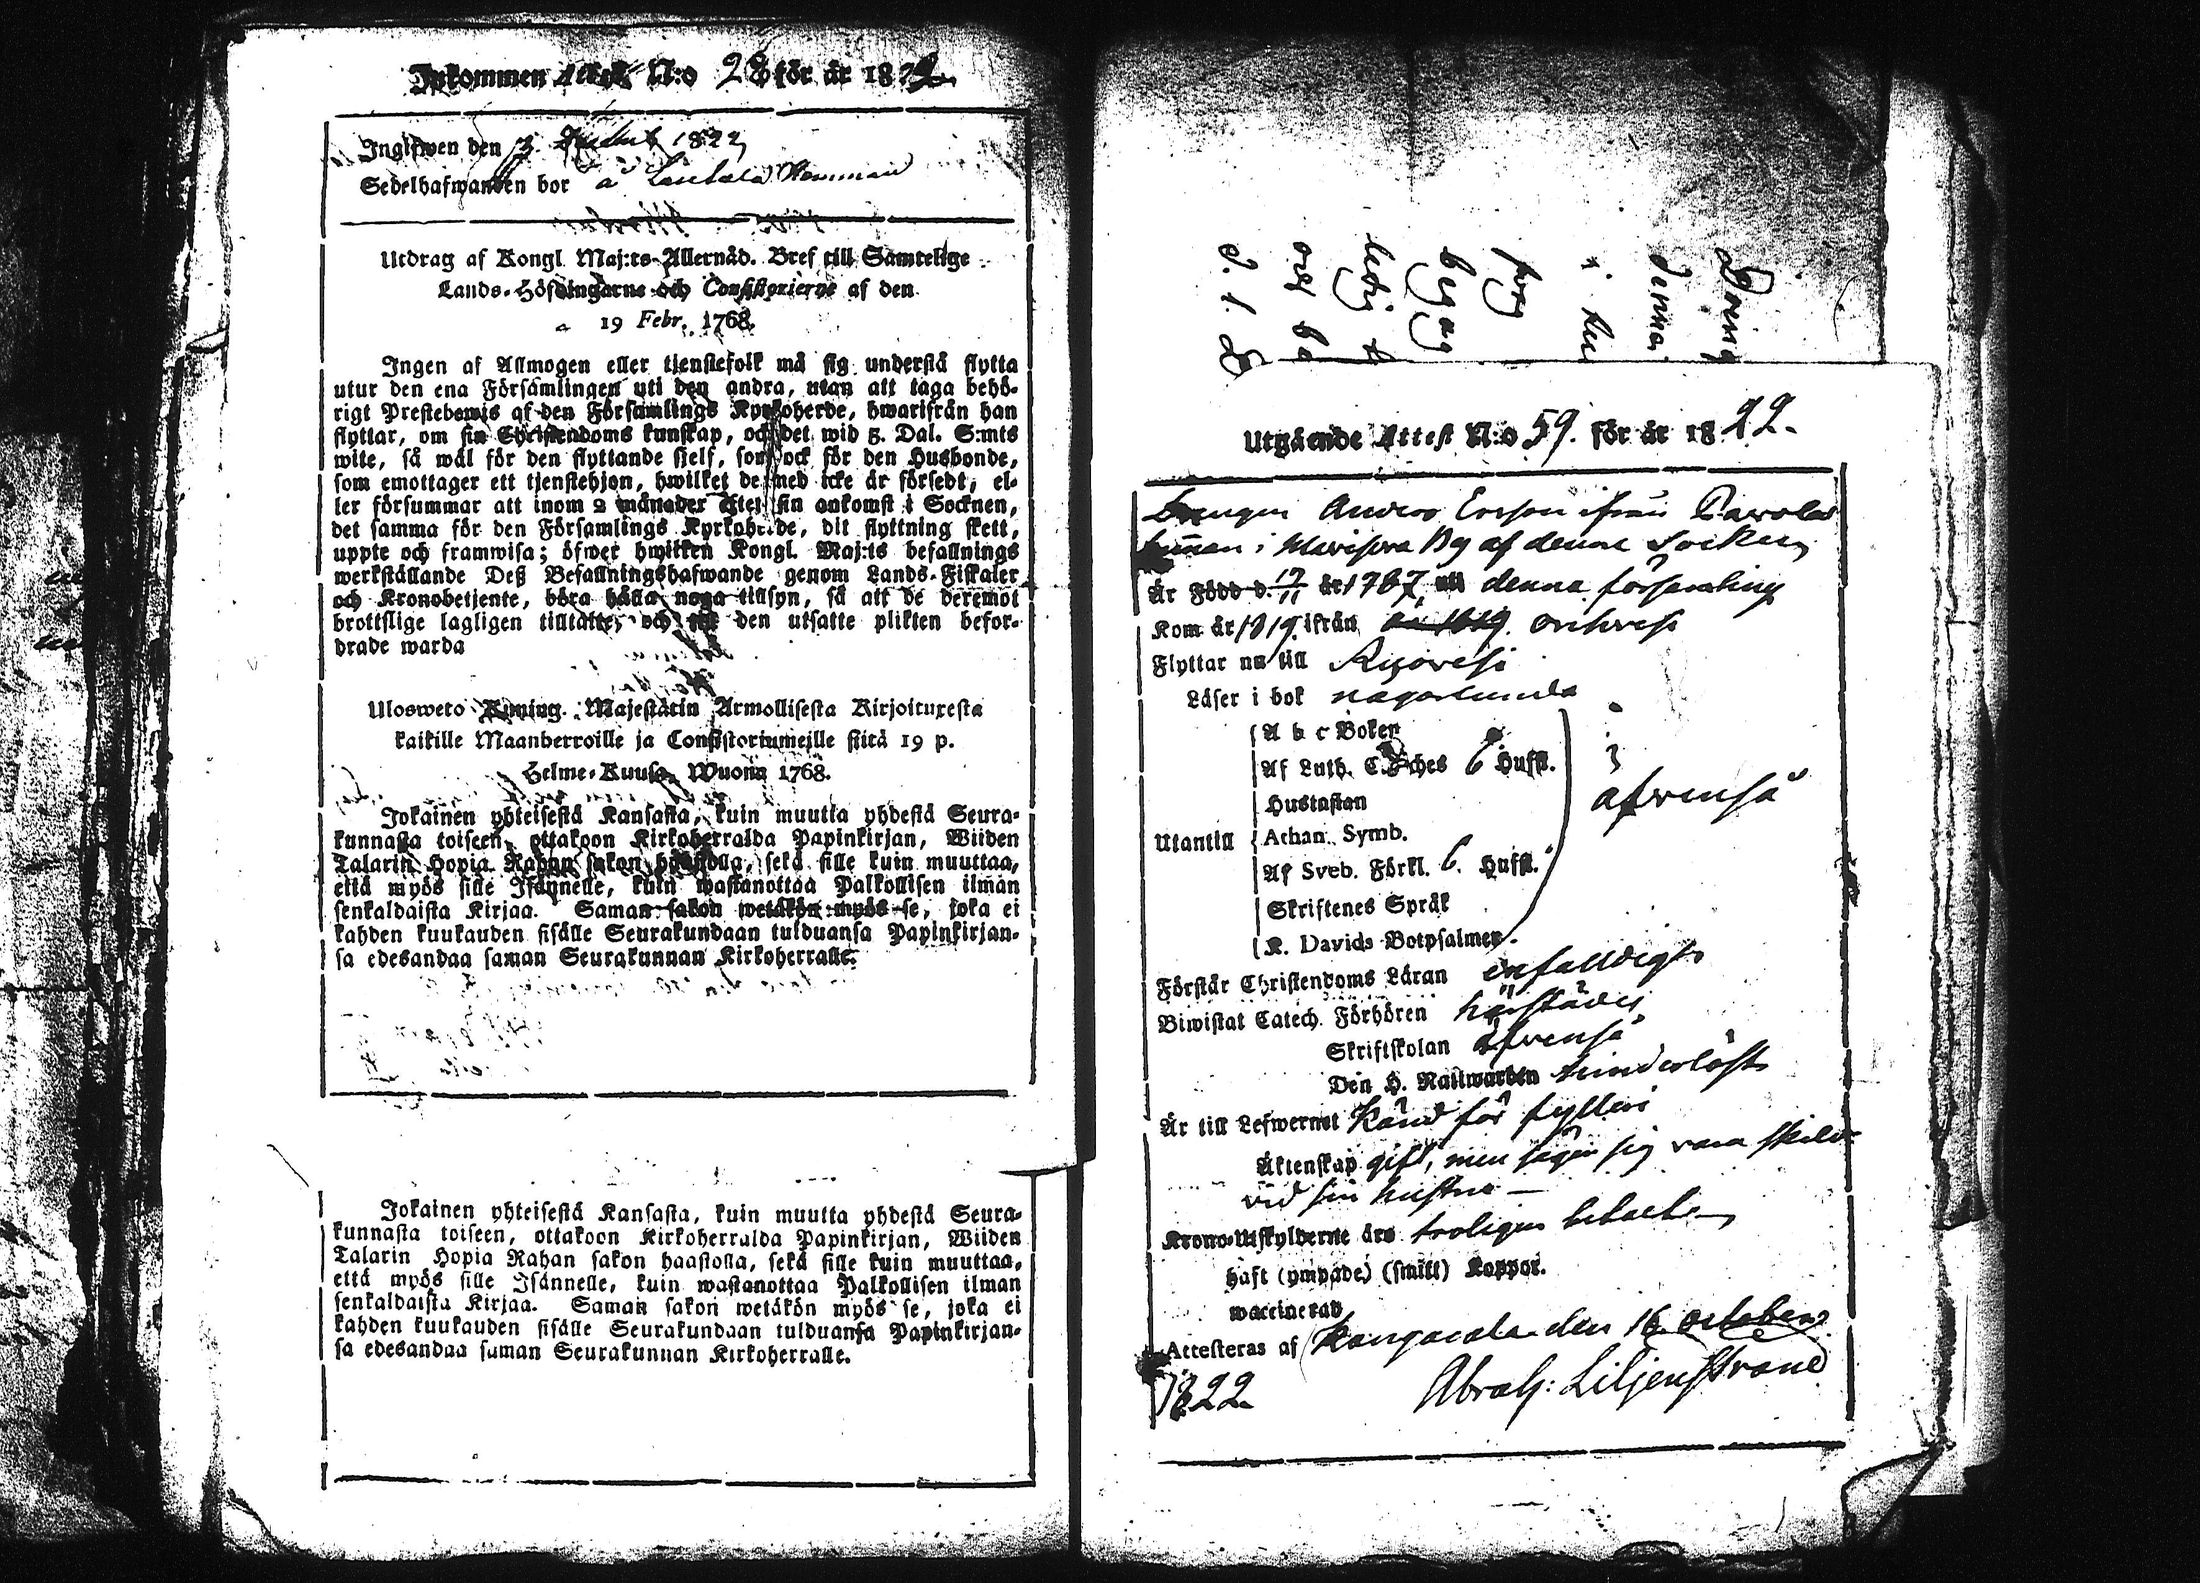 Inkommen Attest N:o 28 för år 1822.
Ingifwen den 3 1822
Sedelhafwanden bor å Hemman
Utdrag af Kongl. Maj:ts Allernåd. Bref till Samtelige
Lands-Höfdingarne och Consistorierne af den
19 Febr. 1768.
Ingen af Allmogen eller tjenstefolk må sig understå flytta
utur den ena Församlingen uti den andra, utan att taga behö-
rigt Prestebewis af den Församlings Kyrkoherde, hwarifrån han
flyttar, om sin Christendoms kunskap, och det wid 5. Dal. S:mts
wite, så wäl för den flyttande sjelf, som ock för den Husbonde,
som emottager ett tjenstehjon, hwilket dermed icke är försedt, el-
ler försummar att inom 2 månader efter sin ankomst i Socknen,
det samma för den Församlings Kyrkoherde, dit flyttning skett,
uppte och framwisa; öfwer hwilken Kongl. Maj:ts befallnings
werkställande Deß Befallningshafwande genom Lands-Fiskaler
och Kronobetjente, böra hålla noga tillsyn, så att de deremot
brottslige lagligen tilltalte, och till den utsatte plikten befor-
drade warda
Ulosweto Kuning. Majestätin Armollisesta Kirjoituxesta
kaikille Maanherroille ja Consistoriumeille siitä 19 p.
Helme-Kuusa, Wuonn 1768.
Jokainen yhteisestä Kansasta, kuin muutta yhdestä Seura-
kunnasta toiseen, ottakoon Kirkoherralda Papinkirjan, Wiiden
Talarin Hopia Rahan sakon haastolla, sekä sille kuin muuttaa,
että myös sille Isännelle, kuin wastanottaa Palkollisen ilman
senkaldaista Kirjaa. Saman sakon wetäkön myös se, joka ei
kahden kuukauden sisälle Seurakundaan tulduansa Papinkirjan-
sa edesandaa saman Seurakunnan Kirkoherralle.
Jokainen yhteisestä Kansasta, kuin muutta yhdestä Seura-
kunnasta toiseen, ottakoon Kirkoherralda Papinkirjan, Wiiden
Talarin Hopia Rahan sakon haastolla, sekä sille kuin muuttaa,
että myös sille Isännelle, kuin wastanottaa Palkollisen ilman
senkaldaista Kirjaa. Saman sakon wetäkön myös se, joka ei
kahden kuukauden sisälle Seurakundaan tulduansa Papinkirjan-
sa edesandaa saman Seurakunnan Kirkoherralle.
Utgående Attest N:o 59. för år 1822.
Drengen Anders Ersson ifrån
i By af denna Socken
Är Född d. 17/11 år 1767, uti denna församling
Kom år 1819. ifrån Orihvesi
Flyttar nu till Ruovesi
Läser i bok någorlunda
A b c Boken
Af Luth. Cateches 6 Hufst.
Hustaflan
Utantill Athan. Symb. äfvenså
Af Sveb. Förkl. 6. Hufst.
Skriftenes Språk
K. Davids Botpsalmer.
Förstår Christendoms Läran enfaldigt
Biwistat Catech. Förhören härstädes
Skriftskolan äfvenså
Den H. Nattwarden hinderlöst
Är till Lefwernet Känd för fylleri
Äktenskap gift, men säger sig vara skild
vid sin hustru —
Krono-Utskylderne äro troligen betalte
Haft (ympade) (smitt) Koppor.
waccinerad
Attesteras af Kangasala den 16 October
1822 Abrah: Liljenstrand